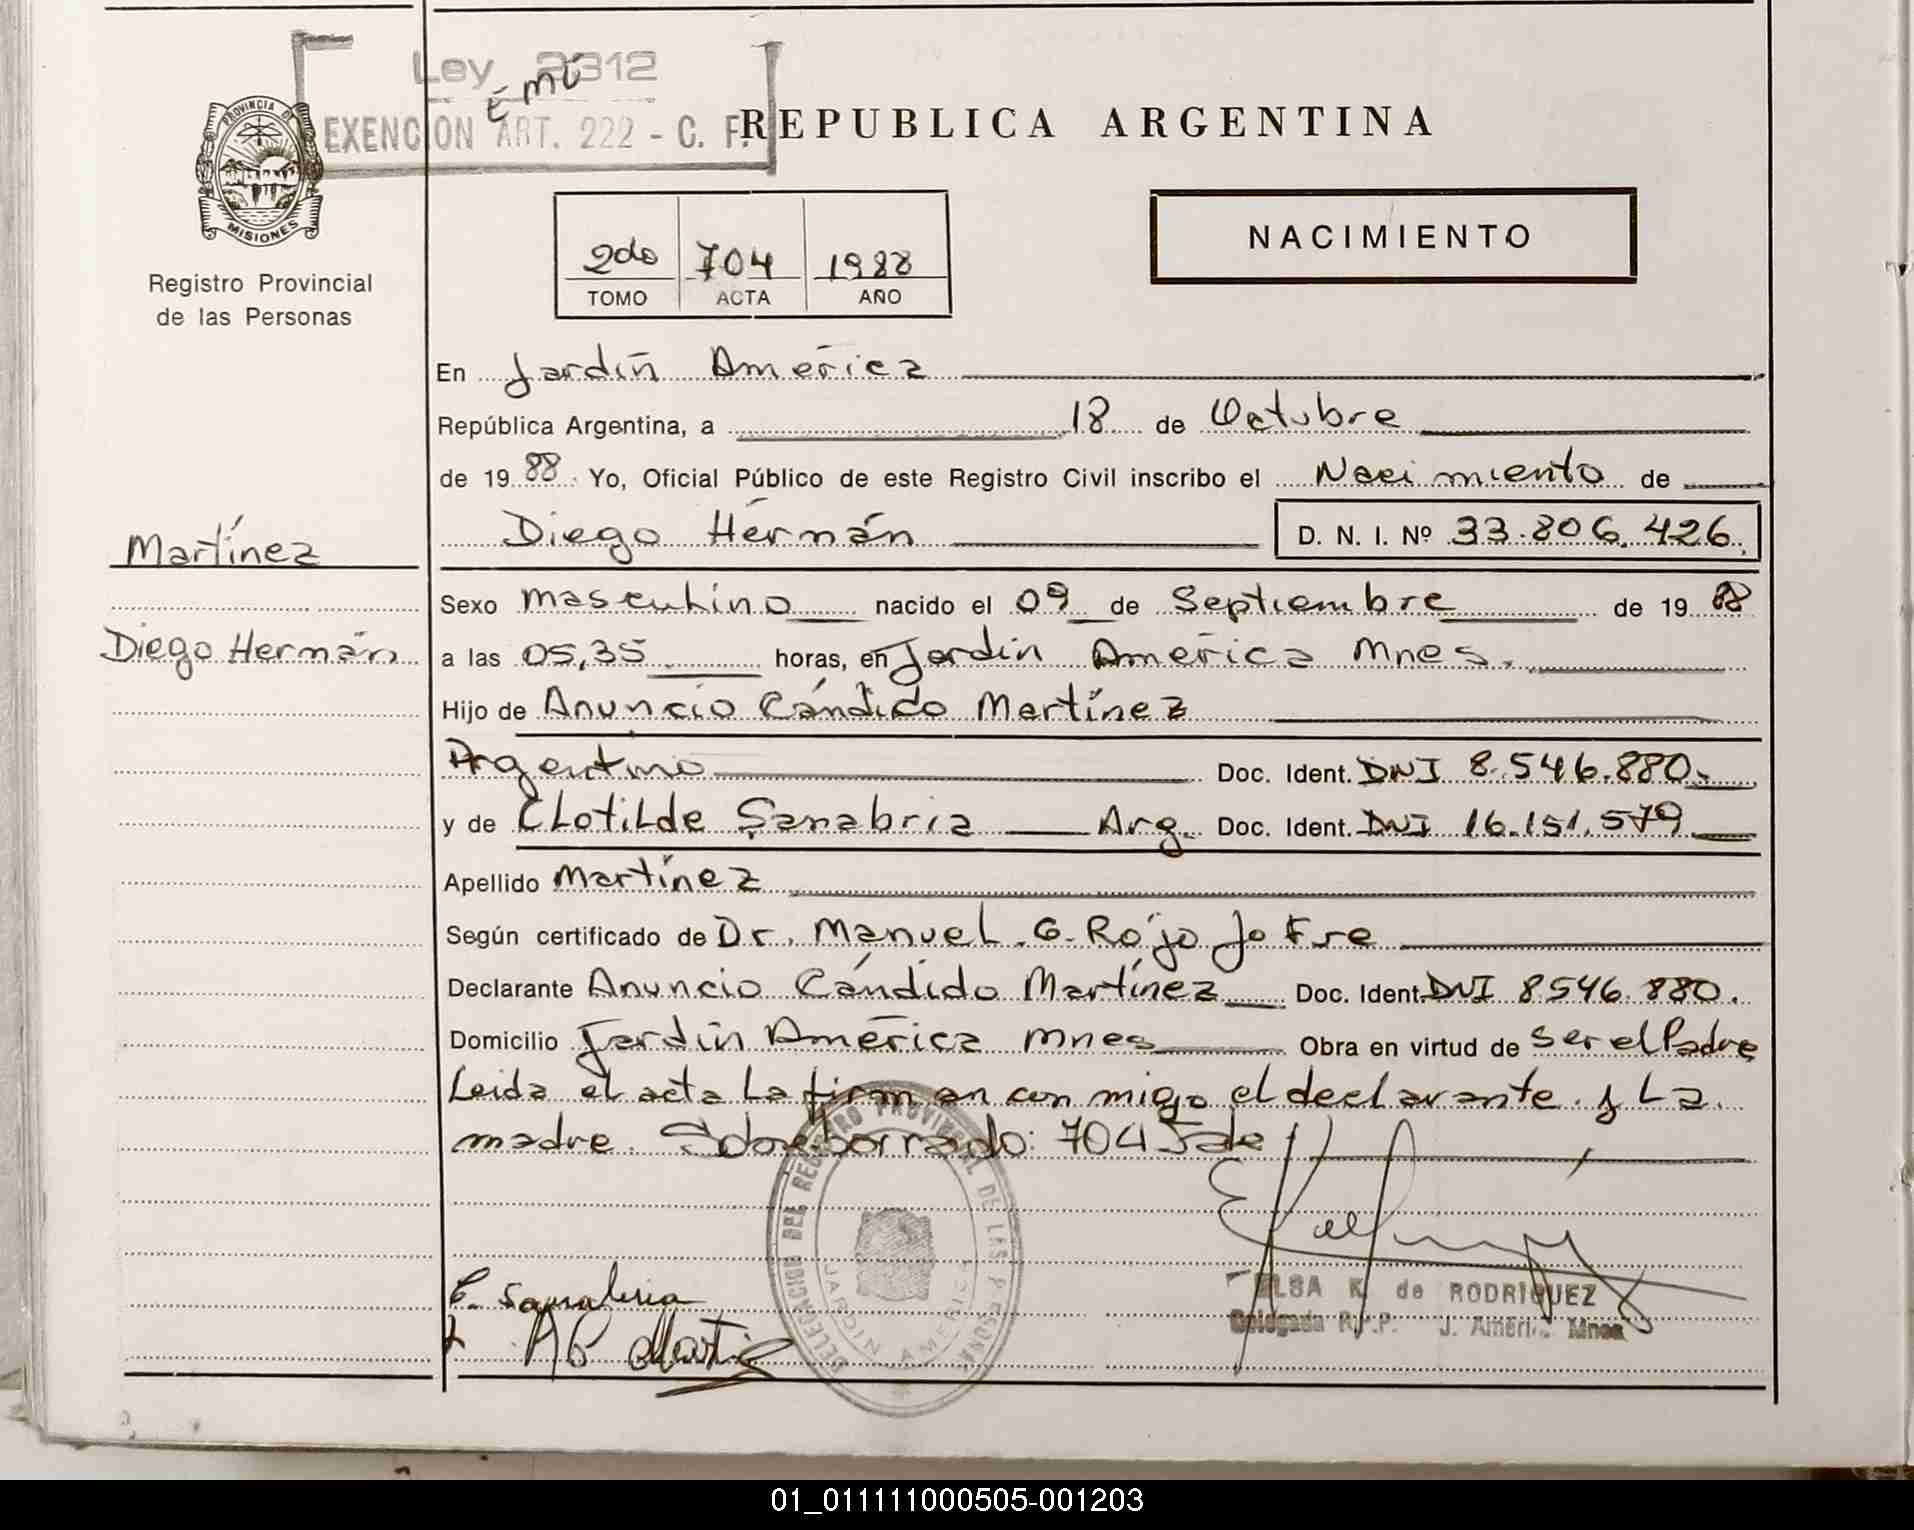 Ley 2312
EXENCION ART. 222 - C. F.
PROVINCIA DE
MISIONES
Registro Provincial
de las Personas
REPUBLICA ARGENTINA
2do 704 1988
TOMO ACTA AÑO
NACIMIENTO
En Jardín América
República Argentina, a 18 de Octubre
de 19 88 Yo, Oficial Público de este Registro Civil inscribo el Nacimiento de
Martínez
Diego Hernán
Diego Hérnán D. N. I. Nº 33.806.426.
Sexo masculino nacido el 09 de Septiembre de 19 88
a las 05,35 horas, en Jardín América Mnes.
Hijo de Anuncio Cándido Martínez
Argentino Doc. Ident. DNI 8.546.880.
y de Clotilde Sanabria Arg. Doc. Ident. DNI 16.151.579
Apellido Martínez
Según certificado de Dr. Manuel G. Rojo Jofre
Declarante Anuncio Cándido Martínez Doc. Ident. DNI 8546.880.
Domicilio Jardín América Mnes Obra en virtud de ser el Padre
Leida el acta la firman con migo el declarante y La
madre. Sobreborrado: 704 Vale
DELEGACION DEL REGISTRO PROVINCIAL DE LAS PERSONAS
JARDIN AMERICA
C. Sanabria
AC Martinez
ELSA K. de RODRIGUEZ
Delegada R.P.P. J. América Mnes
01_011111000505-001203